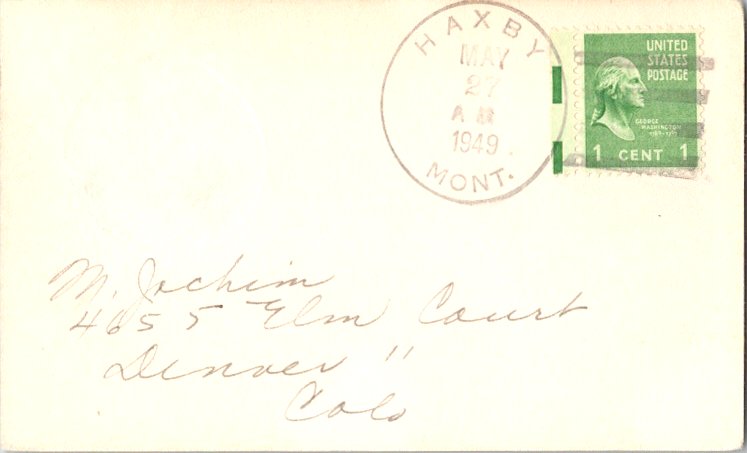 HAXBY
MAY
27
AM
1949
MONT.
UNITED
STATES
POSTAGE
GEORGE
WASHINGTON
1789-1797
1 CENT 1
M. Jochim
4655 Elm Court
Denver 11
Colo